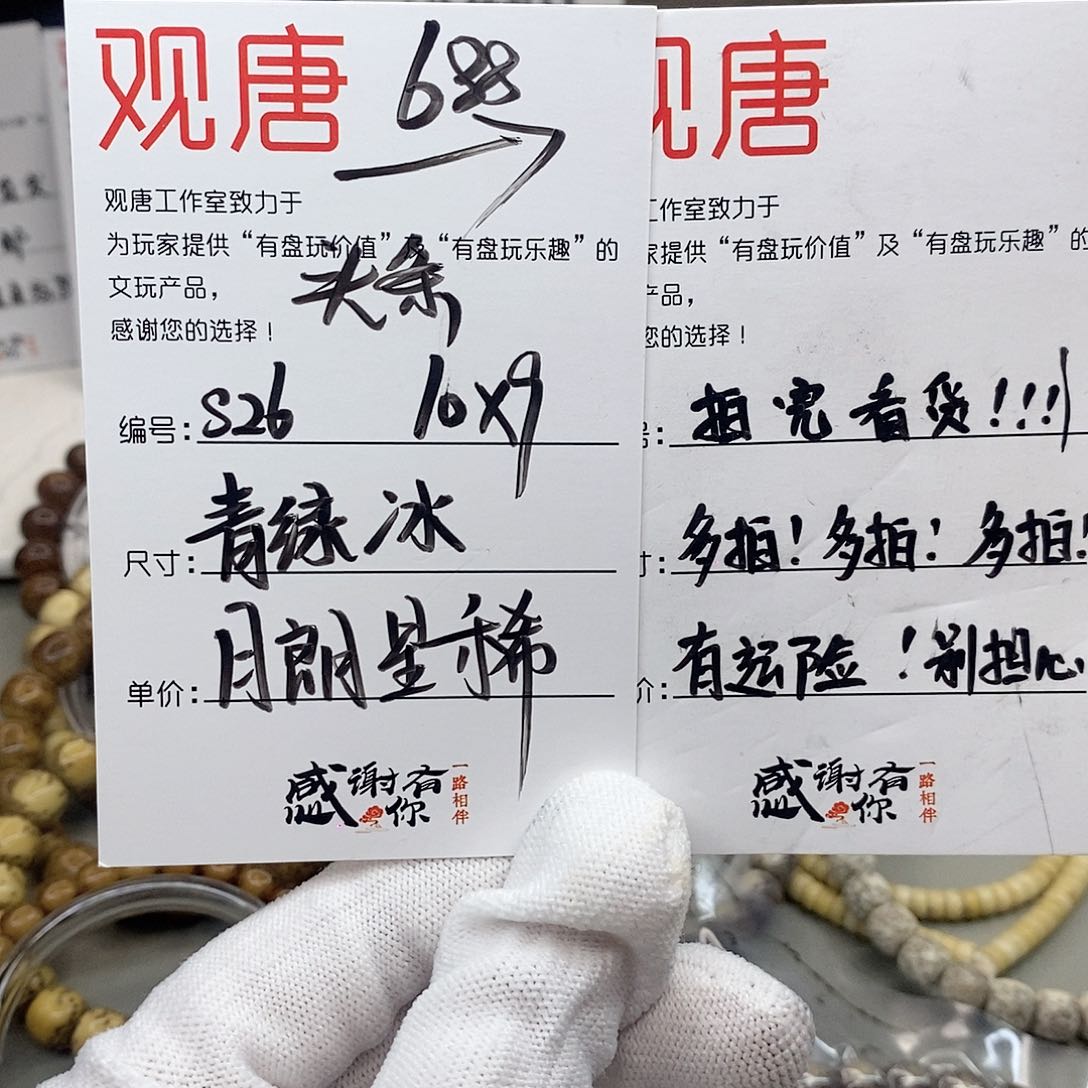 观唐
688
观唐工作室致力于
为玩家提供“有盘玩价值”及“有盘玩乐趣”的
文玩产品，
感谢您的选择！
头条
编号：S26 10X9
尺寸：青绿冰
单价：月朗星稀
感谢有你
一路相伴
观唐
工作室致力于
家提供“有盘玩价值”及“有盘玩乐趣”的
产品，
您的选择！
号：拍完看货!!!
寸：多拍！多拍！多拍！
价：有运险！别担心
感谢有你
一路相伴